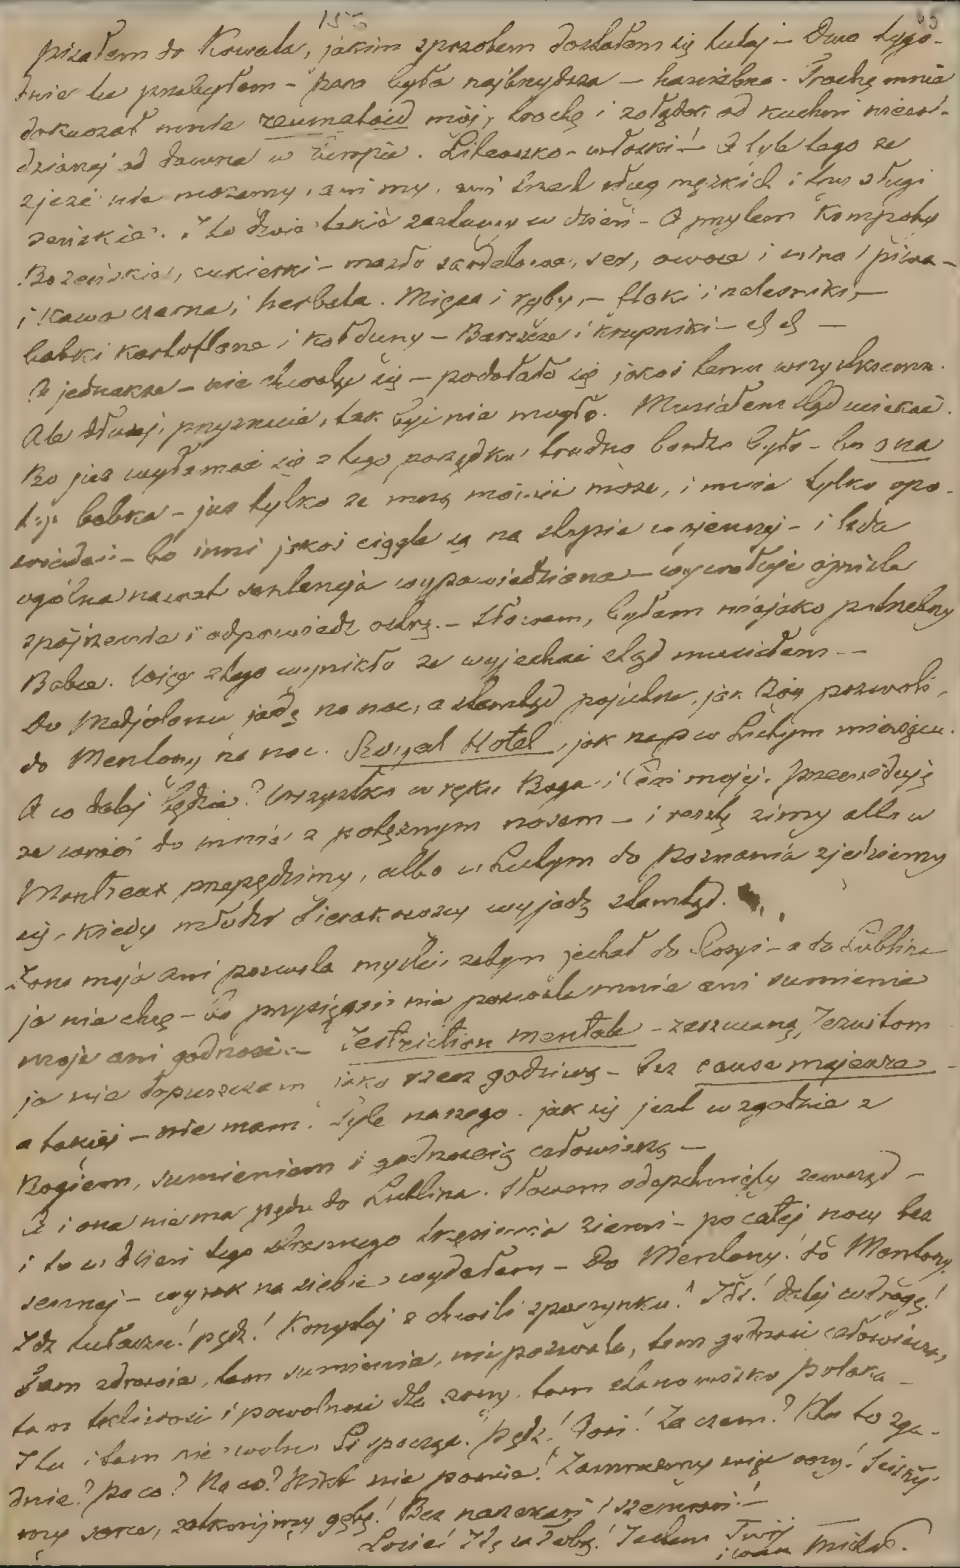 pisałem do Kowala, jakim sposobem dostałem się tutaj – Dwa tygo-
dnie tu przebyłem – pora była najbrzydsza – haniebna. Trochę mnie
dokuczał mnie reumatoid mój, trochę i żołądek od kuchni niewi-
dzianej od dawna w Europie. Litewsko-włoski – A tyle tego że
zjeść nie możemy, ani my, ani trzech sług męzkich i trzy sługi
żeńskie. I to dwie takie zastawy w dzień – A przytem kompoty
Bozeńskie, cukierki – masło sardelowe, ser, owoce i wina i piwa –
i kawa czarna, i herbata. Mięsa i ryby, – flaki i naleśniki, –
babki kartoflane i kołduny – Barszcze i krupniki – etc –
A jednakże – nie chwalę się – podołało się jakoś temu wszystkiemu.
Ale dłużej, przyznacie, tak być nie mogło. Musiałem ztąd uciekać.
Bo już wyłamać się z tego porządku, trudno bardzo było – bo ona
t.j. babka – już tylko ze mną mówić może, i mnie tylko opo-
wiadać – bo inni jakoś ciągle są na stopie wojennej – i lada
ogólna nawet sentencja wypowiedziana – wywołuje
spójrzenie i odpowiedź ostrą. – Słowem, byłem niejako potrzebny
Babce. Więc z tego wynikło że wyjechać ztąd musiałem. –
Do Medjolanu jadę na noc, a ztamtąd pojutrze, jak Bóg pozwoli,
do Mentony na noc. Royal Hotel, jak napw Lutym miesiącu.
A co dalej będzie? Wszystko w ręku Boga i Ceni mojej. Przewiduję
że wróci do mnie z potężnym nosem – i resztę zimy albo w
Montreux przepędzimy, albo w Lutym do Poznania zjedziemy
się, kiedy młodzi Sierakowscy wyjadą ztamtąd.
Żona moja ani pozwala myśleć, żebym jechał do Rosyi – a do Lublina
ja nie chcę – Bo przysięgać nie pozwala mnie ani sumienie
moje ani godność. – restriction mentale – zaszwaną Jezuitom
ja nie dopuszczam jako rzecz godziwą – bez cause majeure –
a takiej – nie mam. Tyle naszego. jak się jest w zgodzie z
Bogiem, sumieniem i godnością człowieką –
A i ona nie ma pędu do Lublina. Słowem odepchnięty zewsząd –
i to w dzień tego strasznego trzęsienia ziemi – po całej nocy bez
sennej – wyrok na siebie wydałem – Do Mentony! do Mentony!
Idź tułaczu! pędź! Korzystaj z chwili spoczynku! Idź! dalej w drogę!
Tam zdrowie, tam sumienie, nie pozwala, tam godność człowieka,
tam tkliwość i powolność dla żony, tam stanowisko polaka –
I tu i tam nie wolno Ci spocząć. Pędź! Goń! Za czem? Kto to zga-
dnie? Po co? Na co? Nikt nie powie! Zamrużmy więc oczy! Ściśnij-
my serce, zatknijmy gębę! Bez narzekań i szemrań! –
Losie! Idę za Tobą! Jestem Twój
Michał.